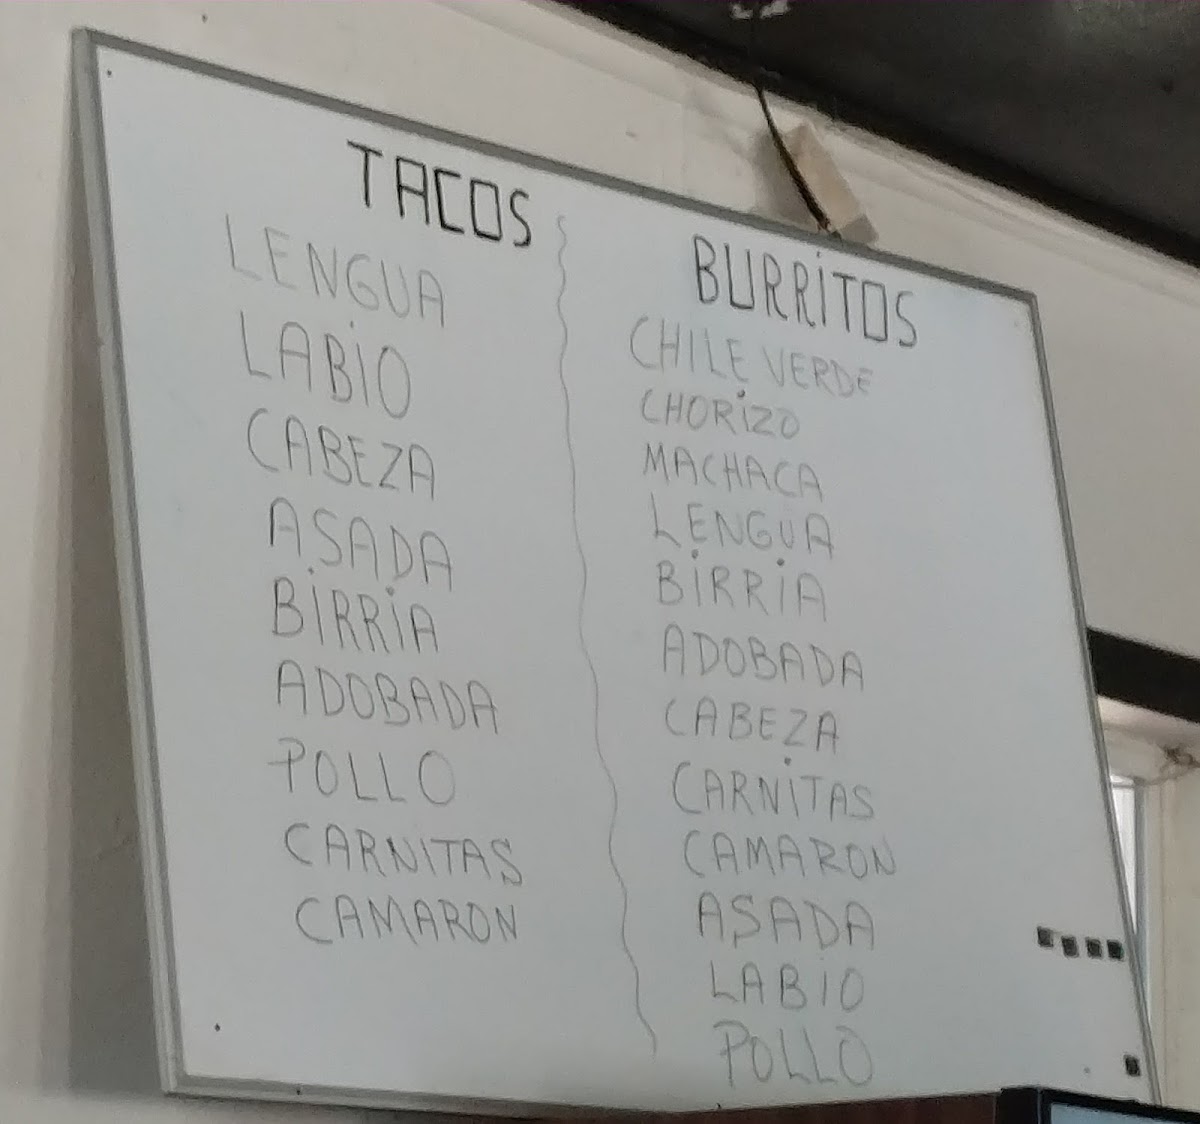 TACOS
LENGUA
LABiO
CABEZA
ASADA
BiRRiA
ADOBADA
POLLO
CARNITAS
CAMARON
BURRiTOS
CHILE VERDE
CHORiZO
MACHACA
LENGUA
BiRRiA
ADOBADA
CABEZA
CARNiTAS
CAMARON
ASADA
LABiO
POLLO